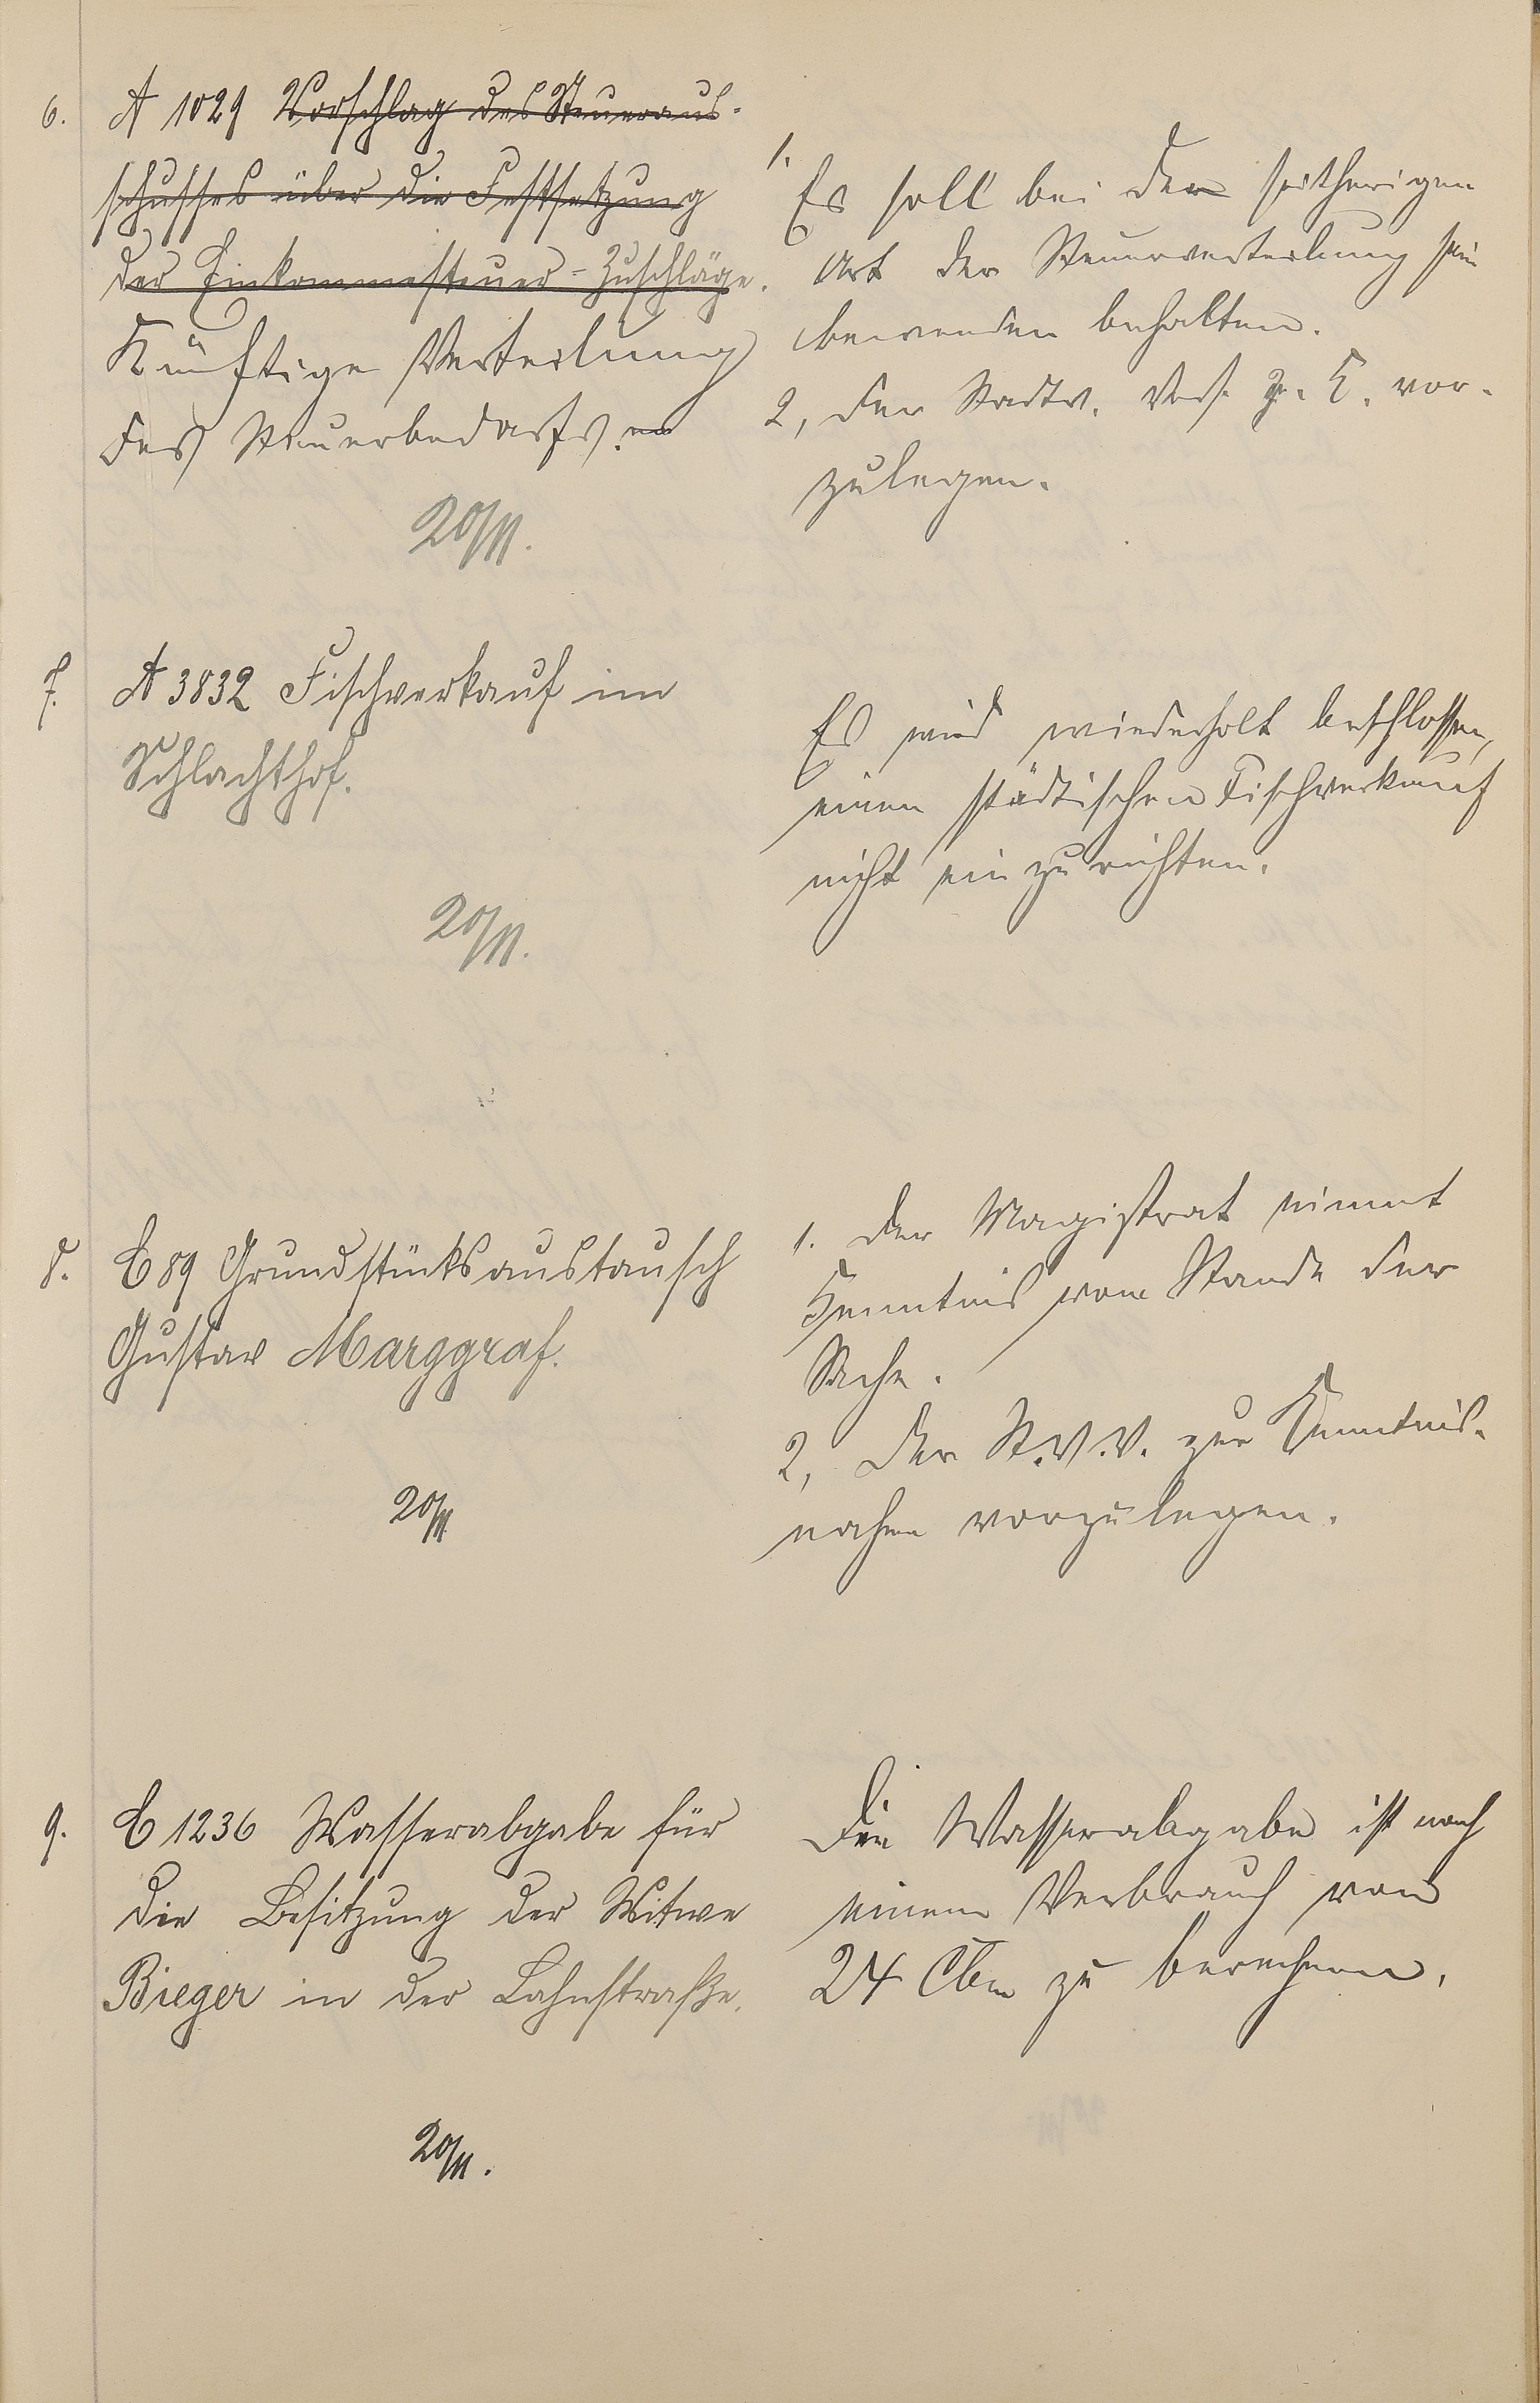 6. A 1029 Vorschlag des Steueraus-
schusses über die Festsetzung
der Einkommesteuer-Zuschläge.
Künftige Verteilung
des Steuerbedarfs.
20/11.
1. Es soll bei der seitherigen
Art der Steuerverteilung sein
bewenden behalten.
2, der Stadtv. Vers. z. K. vor-
zulegen.
7. A 3832 Fischverkauf im
Schlachthof.
20/11.
Es wird wiederholt beschlossen,
einen städtischen Fischverkauf
nicht einzurichten.
8. C 89 Grundstücksaustausch
Gustav Marggraf.
20/11
1. der Magistrat nimmt
Kenntnis vom Stande der
Sache.
2, der St.V.V. zur Kenntnis-
nahme vorzulegen.
9. C 1236 Wasserabgabe für
die Besitzung der Witwe
Bieger in der Lahnstraße.
20/11.
Die Wasserabgabe ist nach
einem Verbrauch von
24 Cbm zu berechnen.